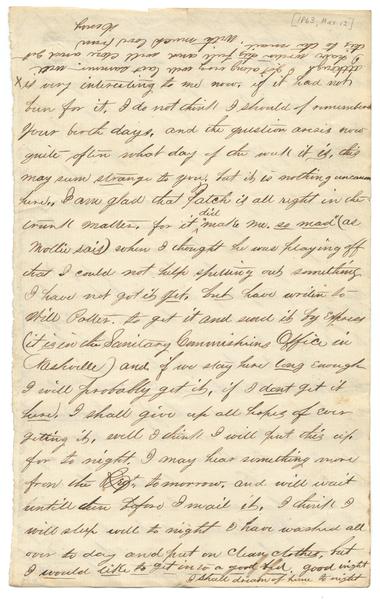 [1863, Mar. 12]
Henry
this to the mail. With much love from
I
x is very interesting to me now, if it had not
been for it, I do not think I should of remembered
Your birth days, and the question arises now
quite often what day of the week it is, this
may seem strange to you, but it is nothing uncommon
here, I am glad that Patch is all right in the
trunk matter, for it did make me so mad (as
Mollie sais) when I thought he was playing off
that I could not help spitting out something
I have not got it yet, but have writen to
Will Potter, to get it and send it by Express
(it is in the Sanitary Commishins Office in
Nashville) and if we stay here long enough
I will probably get it, if I dont get it
here, I shall give up all hopes of ever
getting it, well I think I will put this up
for to night, I may hear something more
from the Regt to morrow, and will wait
untill then before I mail it, I think I
will sleep well to night I have washed all
over to day and put on clean clothes, but
I would like to get in to a good bed, good night
I shall dream of home to night